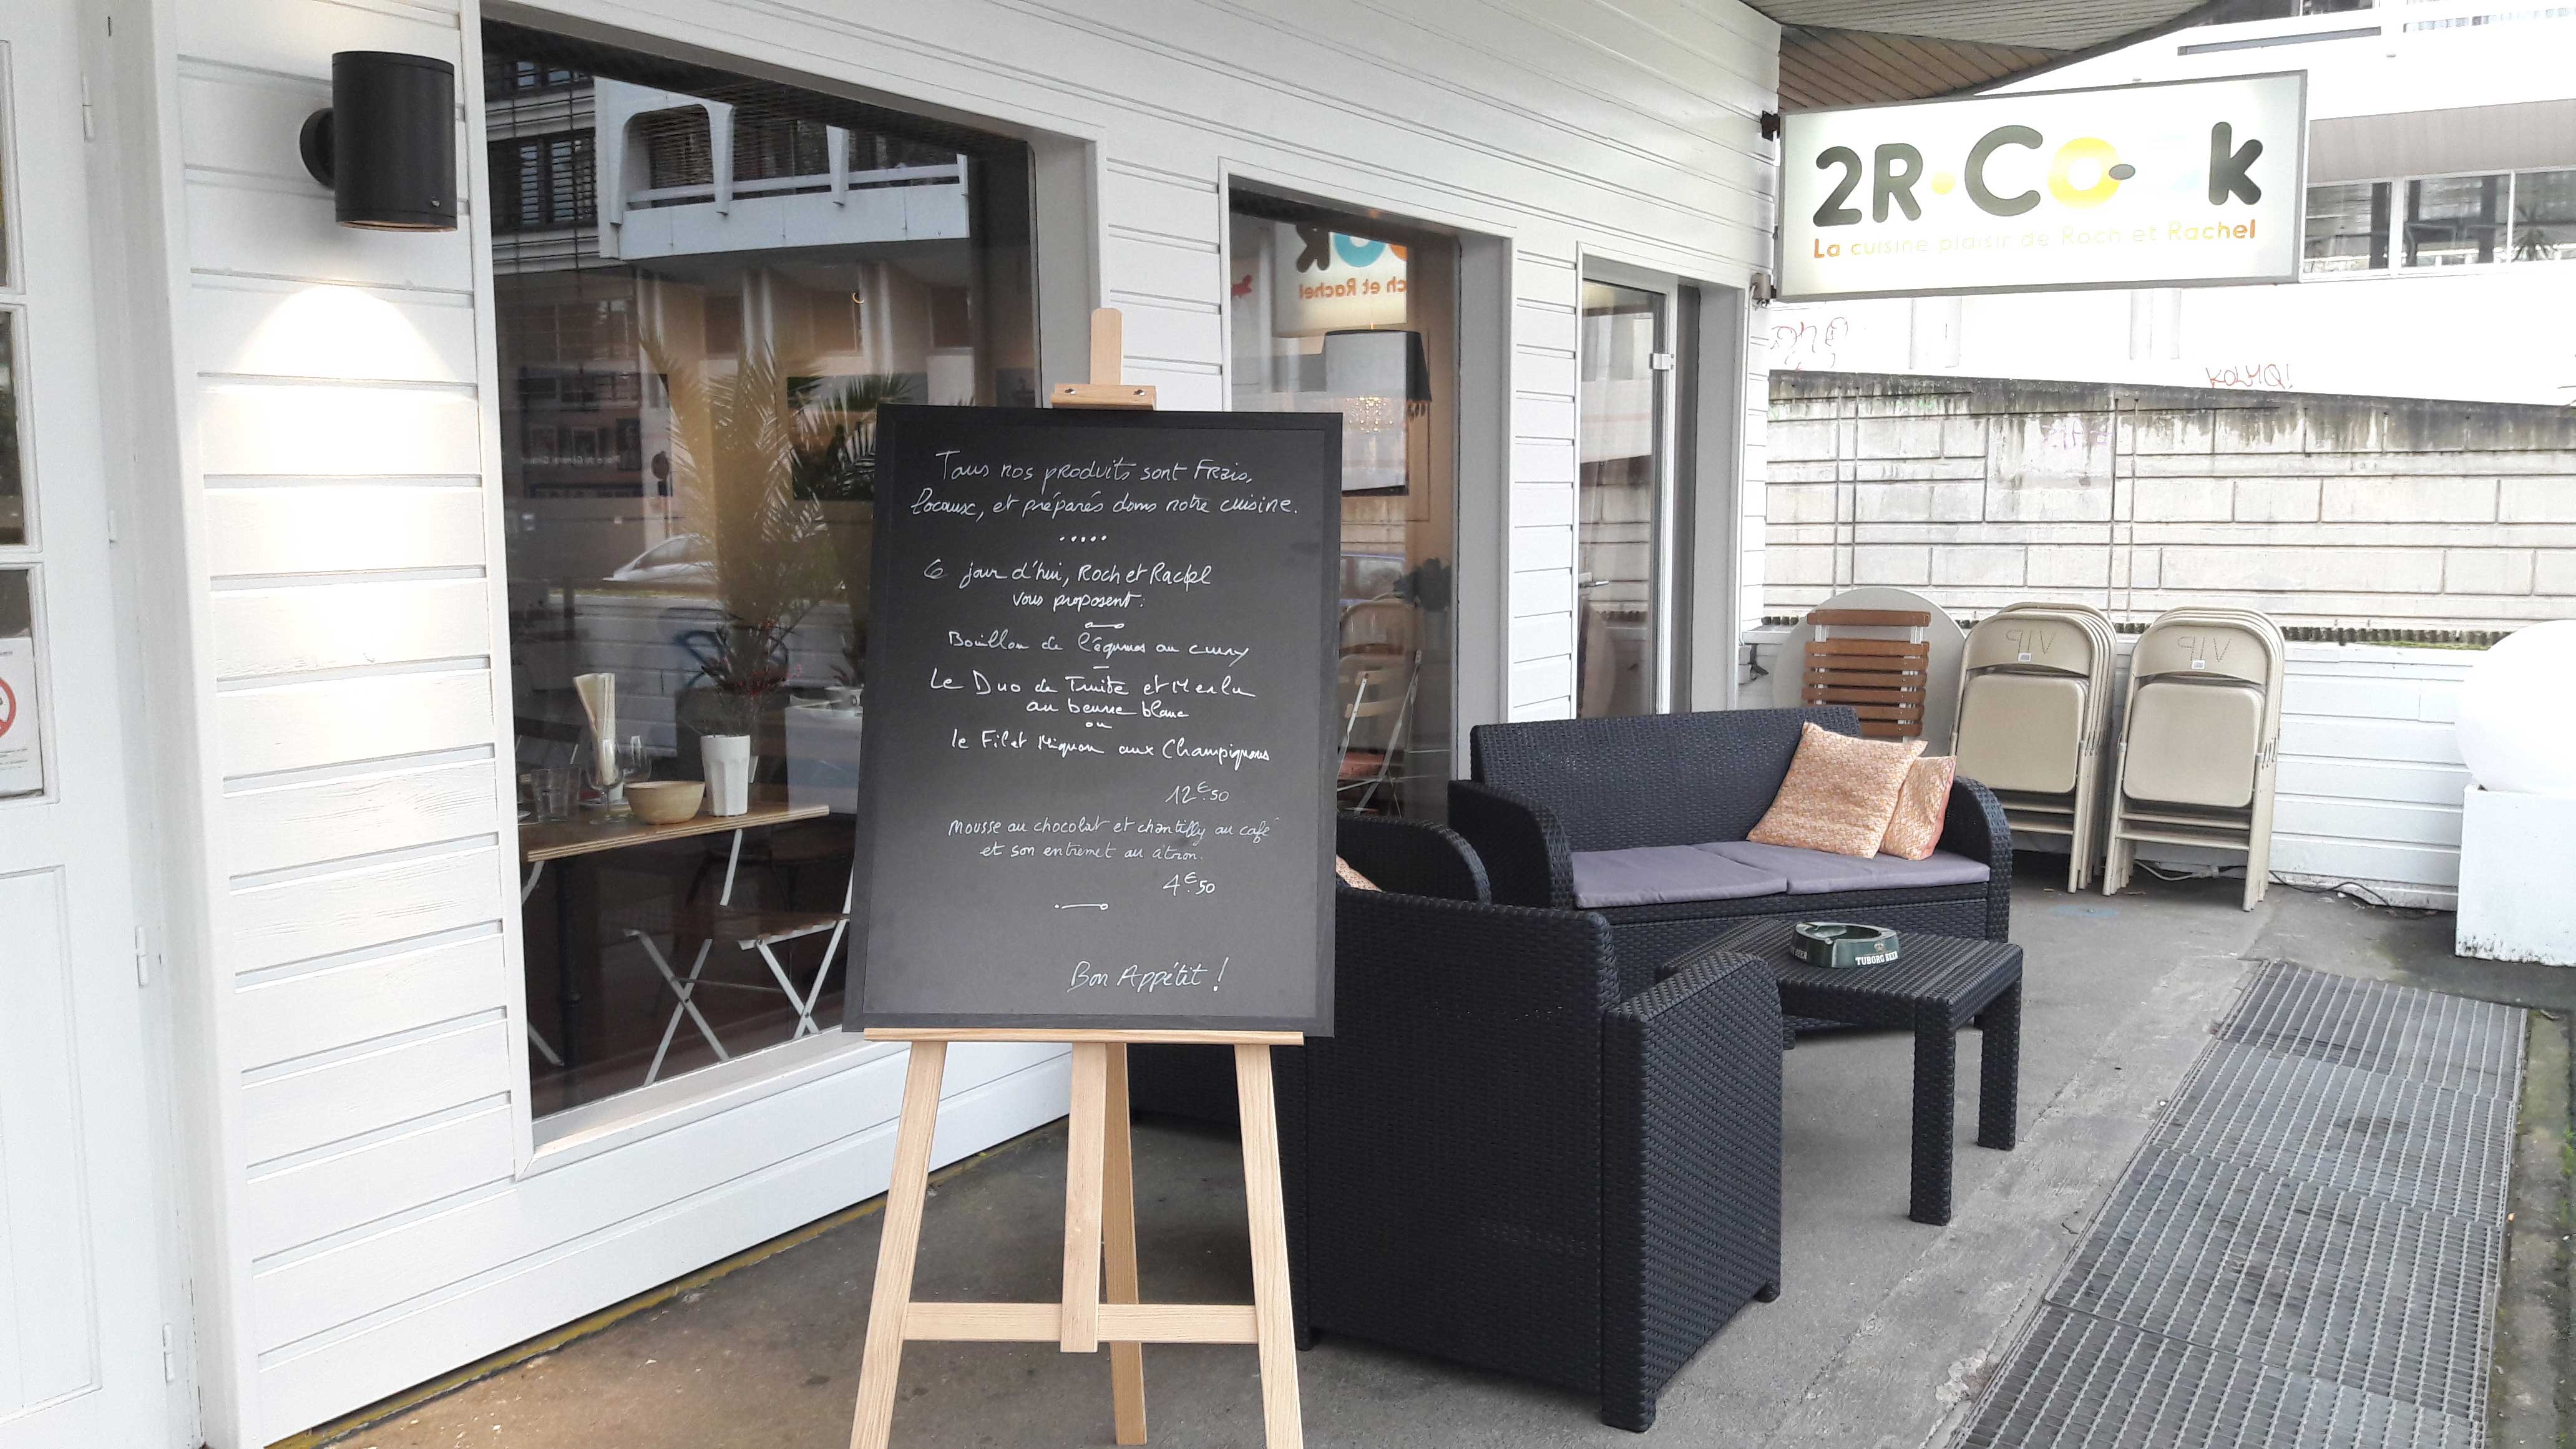 Tous nos produits sont Frais,
locaux, et préparés dans notre cuisine.
Ce jour d'hui, Roch et Rachel
vous proposent:
Bouillon de légumes au curry
Le Duo de Truite et Merlu
au beurre blanc
ou
le Filet Mignon aux Champignons
12€.50
Mousse au chocolat et chantilly au café
et son entremet au citron.
4€.50
Bon Appétit !
2R·COOk
La cuisine plaisir de Roch et Rachel
ok
ch et Rachel
KOLMQ!
VIP
VIP
TUBORG BEER